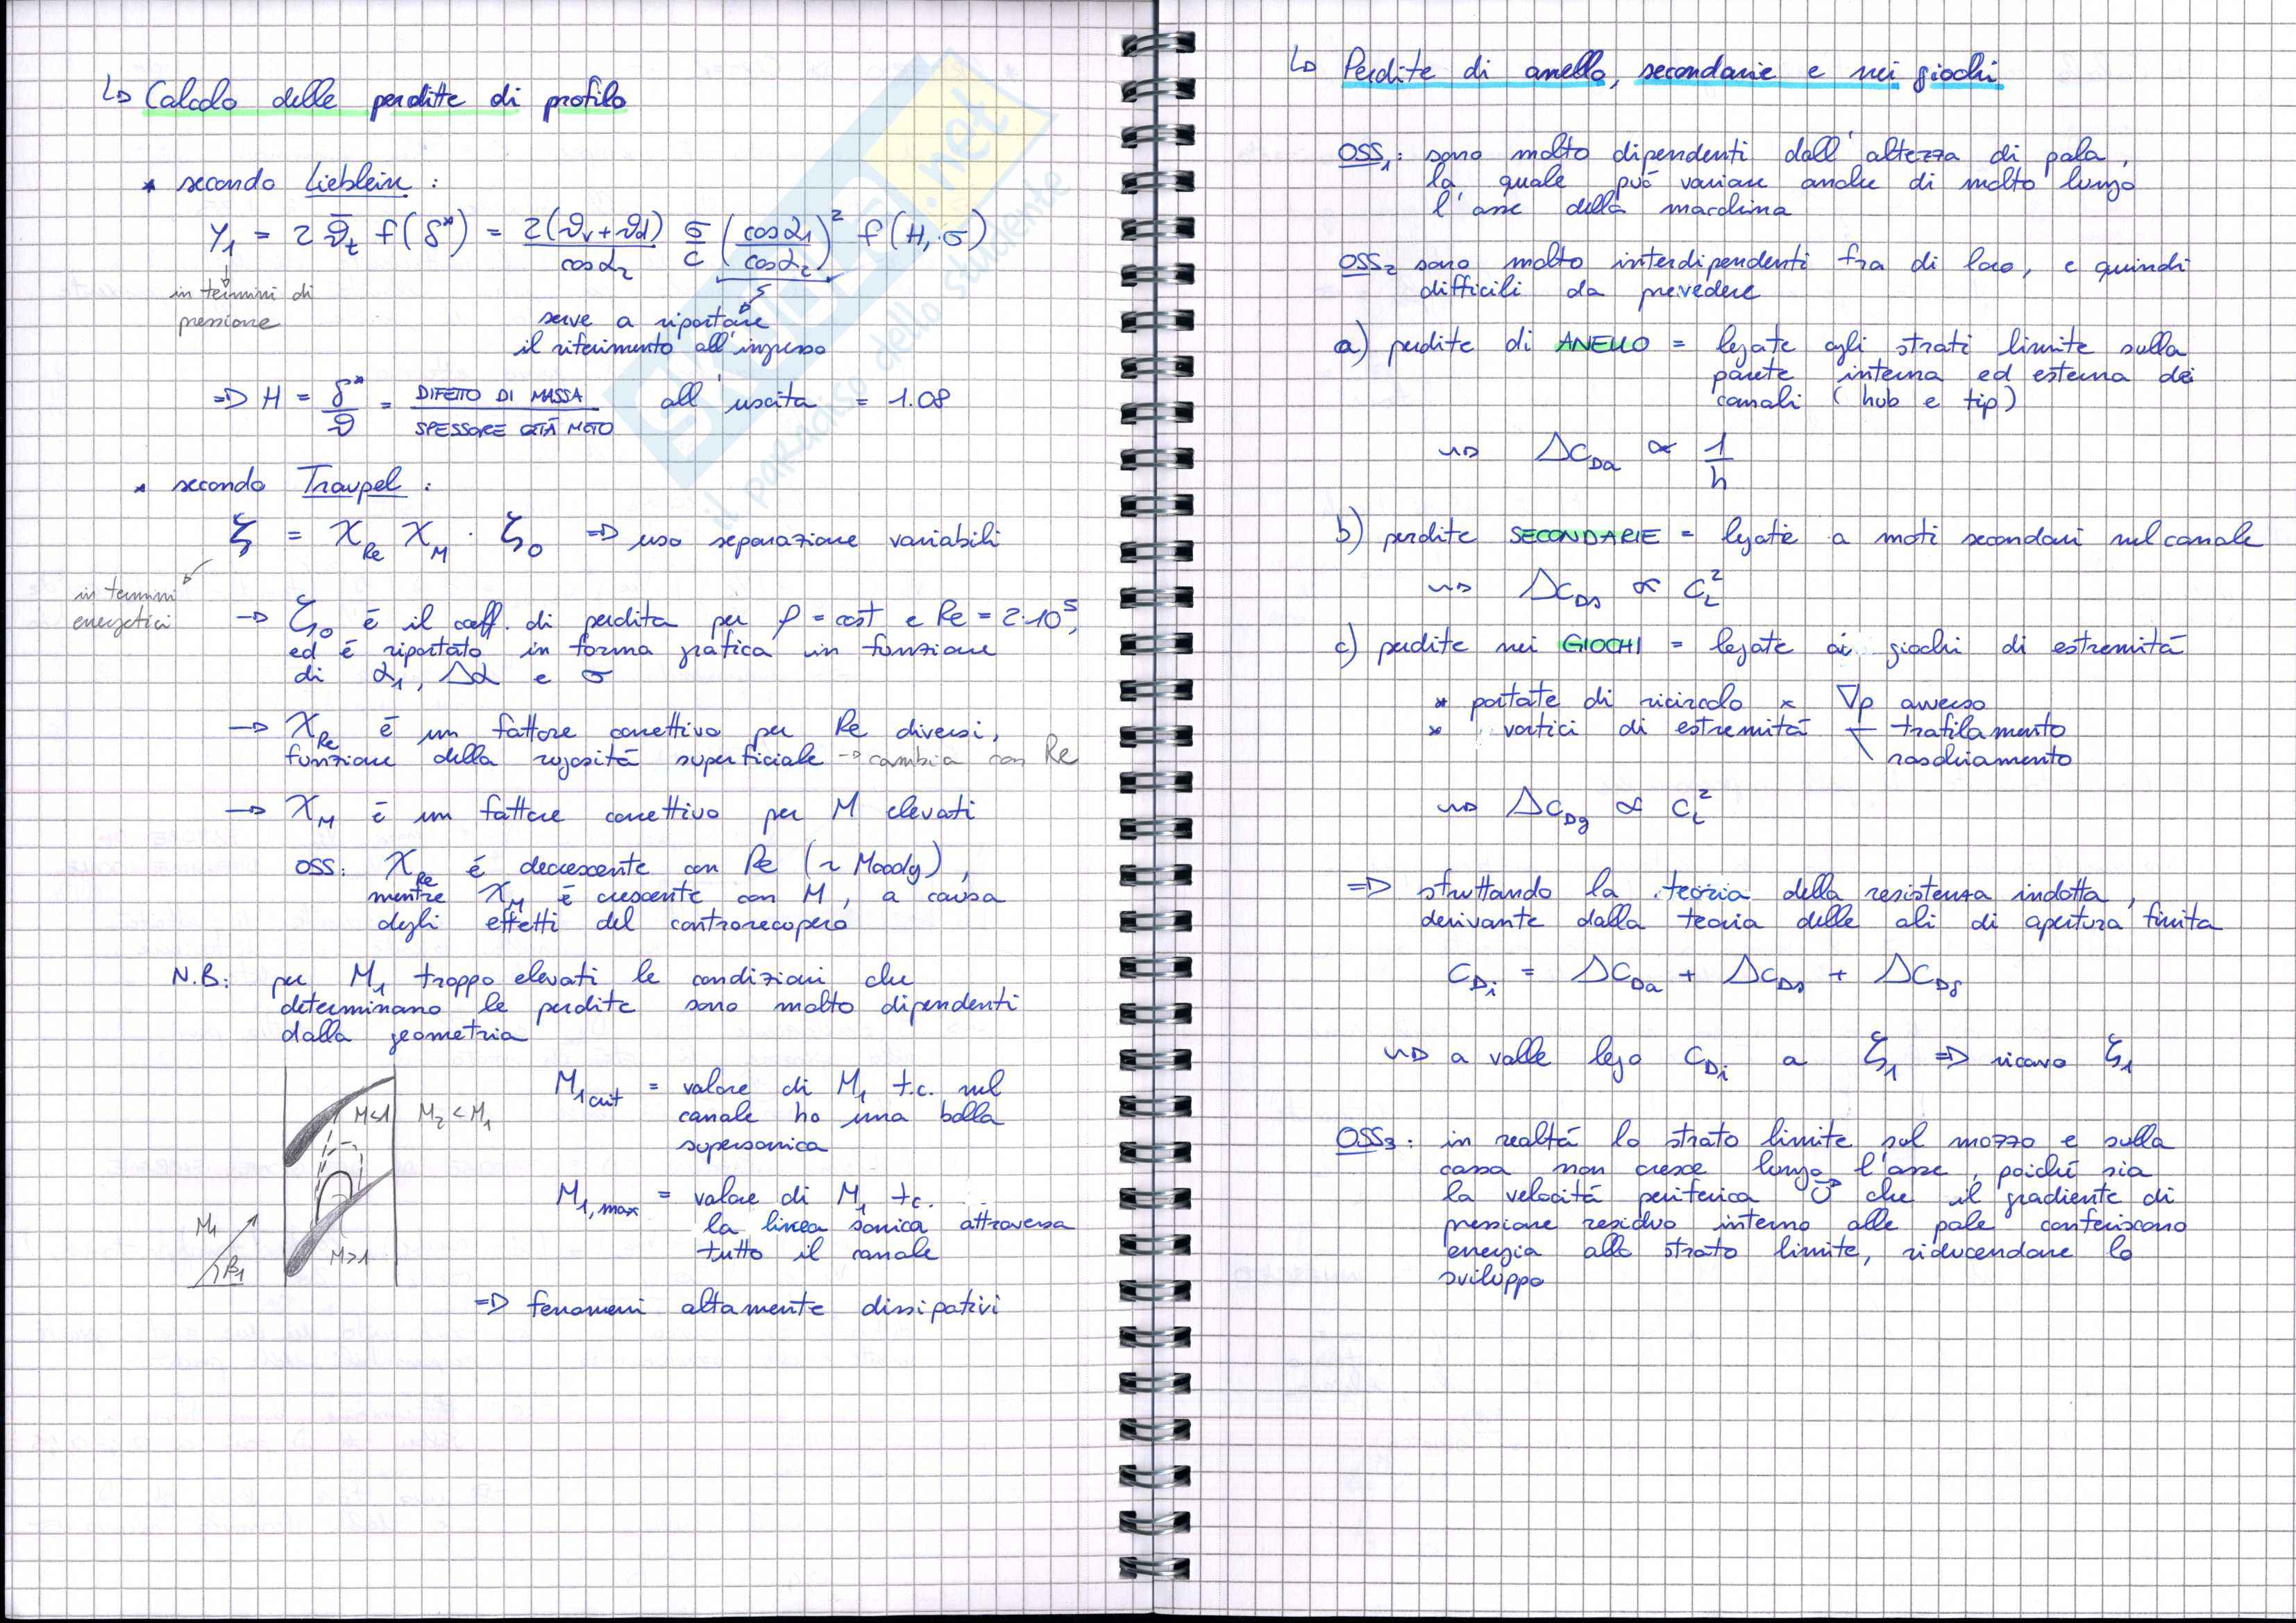 ↳ Calcolo delle perdite di profilo
* secondo Lieblein :
Y₁ = 2 ϑ̄ₜ f(δ*) = 2(ϑᵥ+ϑd)/cosα₂ σ/c (cosα₁/cosα₂)² f(H, σ)
in termini di
pressione
serve a riportare
il riferimento all'ingresso
⇒ H = δ*/ϑ = DIFETTO DI MASSA / SPESSORE QTÀ MOTO all'uscita = 1.08
* secondo Traupel :
ζ = χ_Re χ_M · ζ₀ ⇒ uso separazione variabili
in termini
energetici
→ ζ₀ è il coeff. di perdita per ρ = cost e Re = 2·10⁵,
ed è riportato in forma grafica in funzione
di α₁, Δα e σ
→ χ_Re è un fattore correttivo per Re diversi,
funzione della rugosità superficiale → cambia con Re
→ χ_M è un fattore correttivo per M elevati
OSS: χ_Re è decrescente con Re (~ Moody),
mentre χ_M è crescente con M, a causa
degli effetti del controrecupero
N.B: per M₁ troppo elevati le condizioni che
determinano le perdite sono molto dipendenti
dalla geometria
M<1 M₂ < M₁
M₁
β₁
M>1
M₁crit = valore di M₁ t.c. nel
canale ho una bolla
supersonica
M₁,max = valore di M₁ t.c.
la linea sonica attraversa
tutto il canale
⇒ fenomeni altamente dissipativi
↳ Perdite di anello, secondarie e nei giochi
OSS₁: sono molto dipendenti dall'altezza di pala,
la quale può variare anche di molto lungo
l'asse della macchina
OSS₂ sono molto interdipendenti fra di loro, e quindi
difficili da prevedere
a) perdite di ANELLO = legate agli strati limite sulla
parete interna ed esterna dei
canali (hub e tip)
⇝ ΔC_Da ∝ 1/h
b) perdite SECONDARIE = legate a moti secondari nel canale
⇝ ΔC_Ds ∝ C_L²
c) perdite nei GIOCHI = legate ai giochi di estremità
* portate di ricircolo × ∇p avverso
* vortici di estremità trafilamento
raschiamento
⇝ ΔC_Dg ∝ C_L²
⇒ sfruttando la teoria della resistenza indotta,
derivante dalla teoria delle ali di apertura finita
C_Di = ΔC_Da + ΔC_Ds + ΔC_Dg
⇝ a valle lego C_Di a ζ₁ ⇒ ricavo ζ₁
OSS₃: in realtà lo strato limite sul mozzo e sulla
cassa non cresce lungo l'asse, poiché sia
la velocità periferica U⃗ che il gradiente di
pressione residuo interno alle pale conferiscono
energia allo strato limite, riducendone lo
sviluppo
il paradiso dello studente